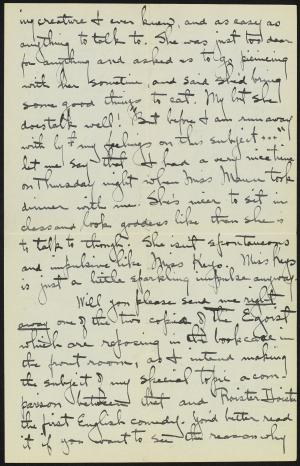 ing creature I ever knew, and as easy as
anything to talk to. She was just too dear
for anything and asked us to go picnicing
with her sometime, and said she'd bring
some good things to eat. My but she
does talk well! But before I am run away
with by my feelings on this subject...
let me say that I had a very nice time
on Thursday night when Miss Mann took
dinner with me. She's nicer to sit in
class and look goddess like than she is
to talk to though. She isn't spontaneous
and impulsive like Miss Keys. Miss Keys
is just a little sparkling impulse anyway.
Will you please send me right
away one of the two copies of The Egoist
which are reposing in the bookcase in
the front room, as I intend making
the subject of my special topic a com-
parison between that and Roister Doister
the first English comedy. You'd better read
it if you want to see the reason why